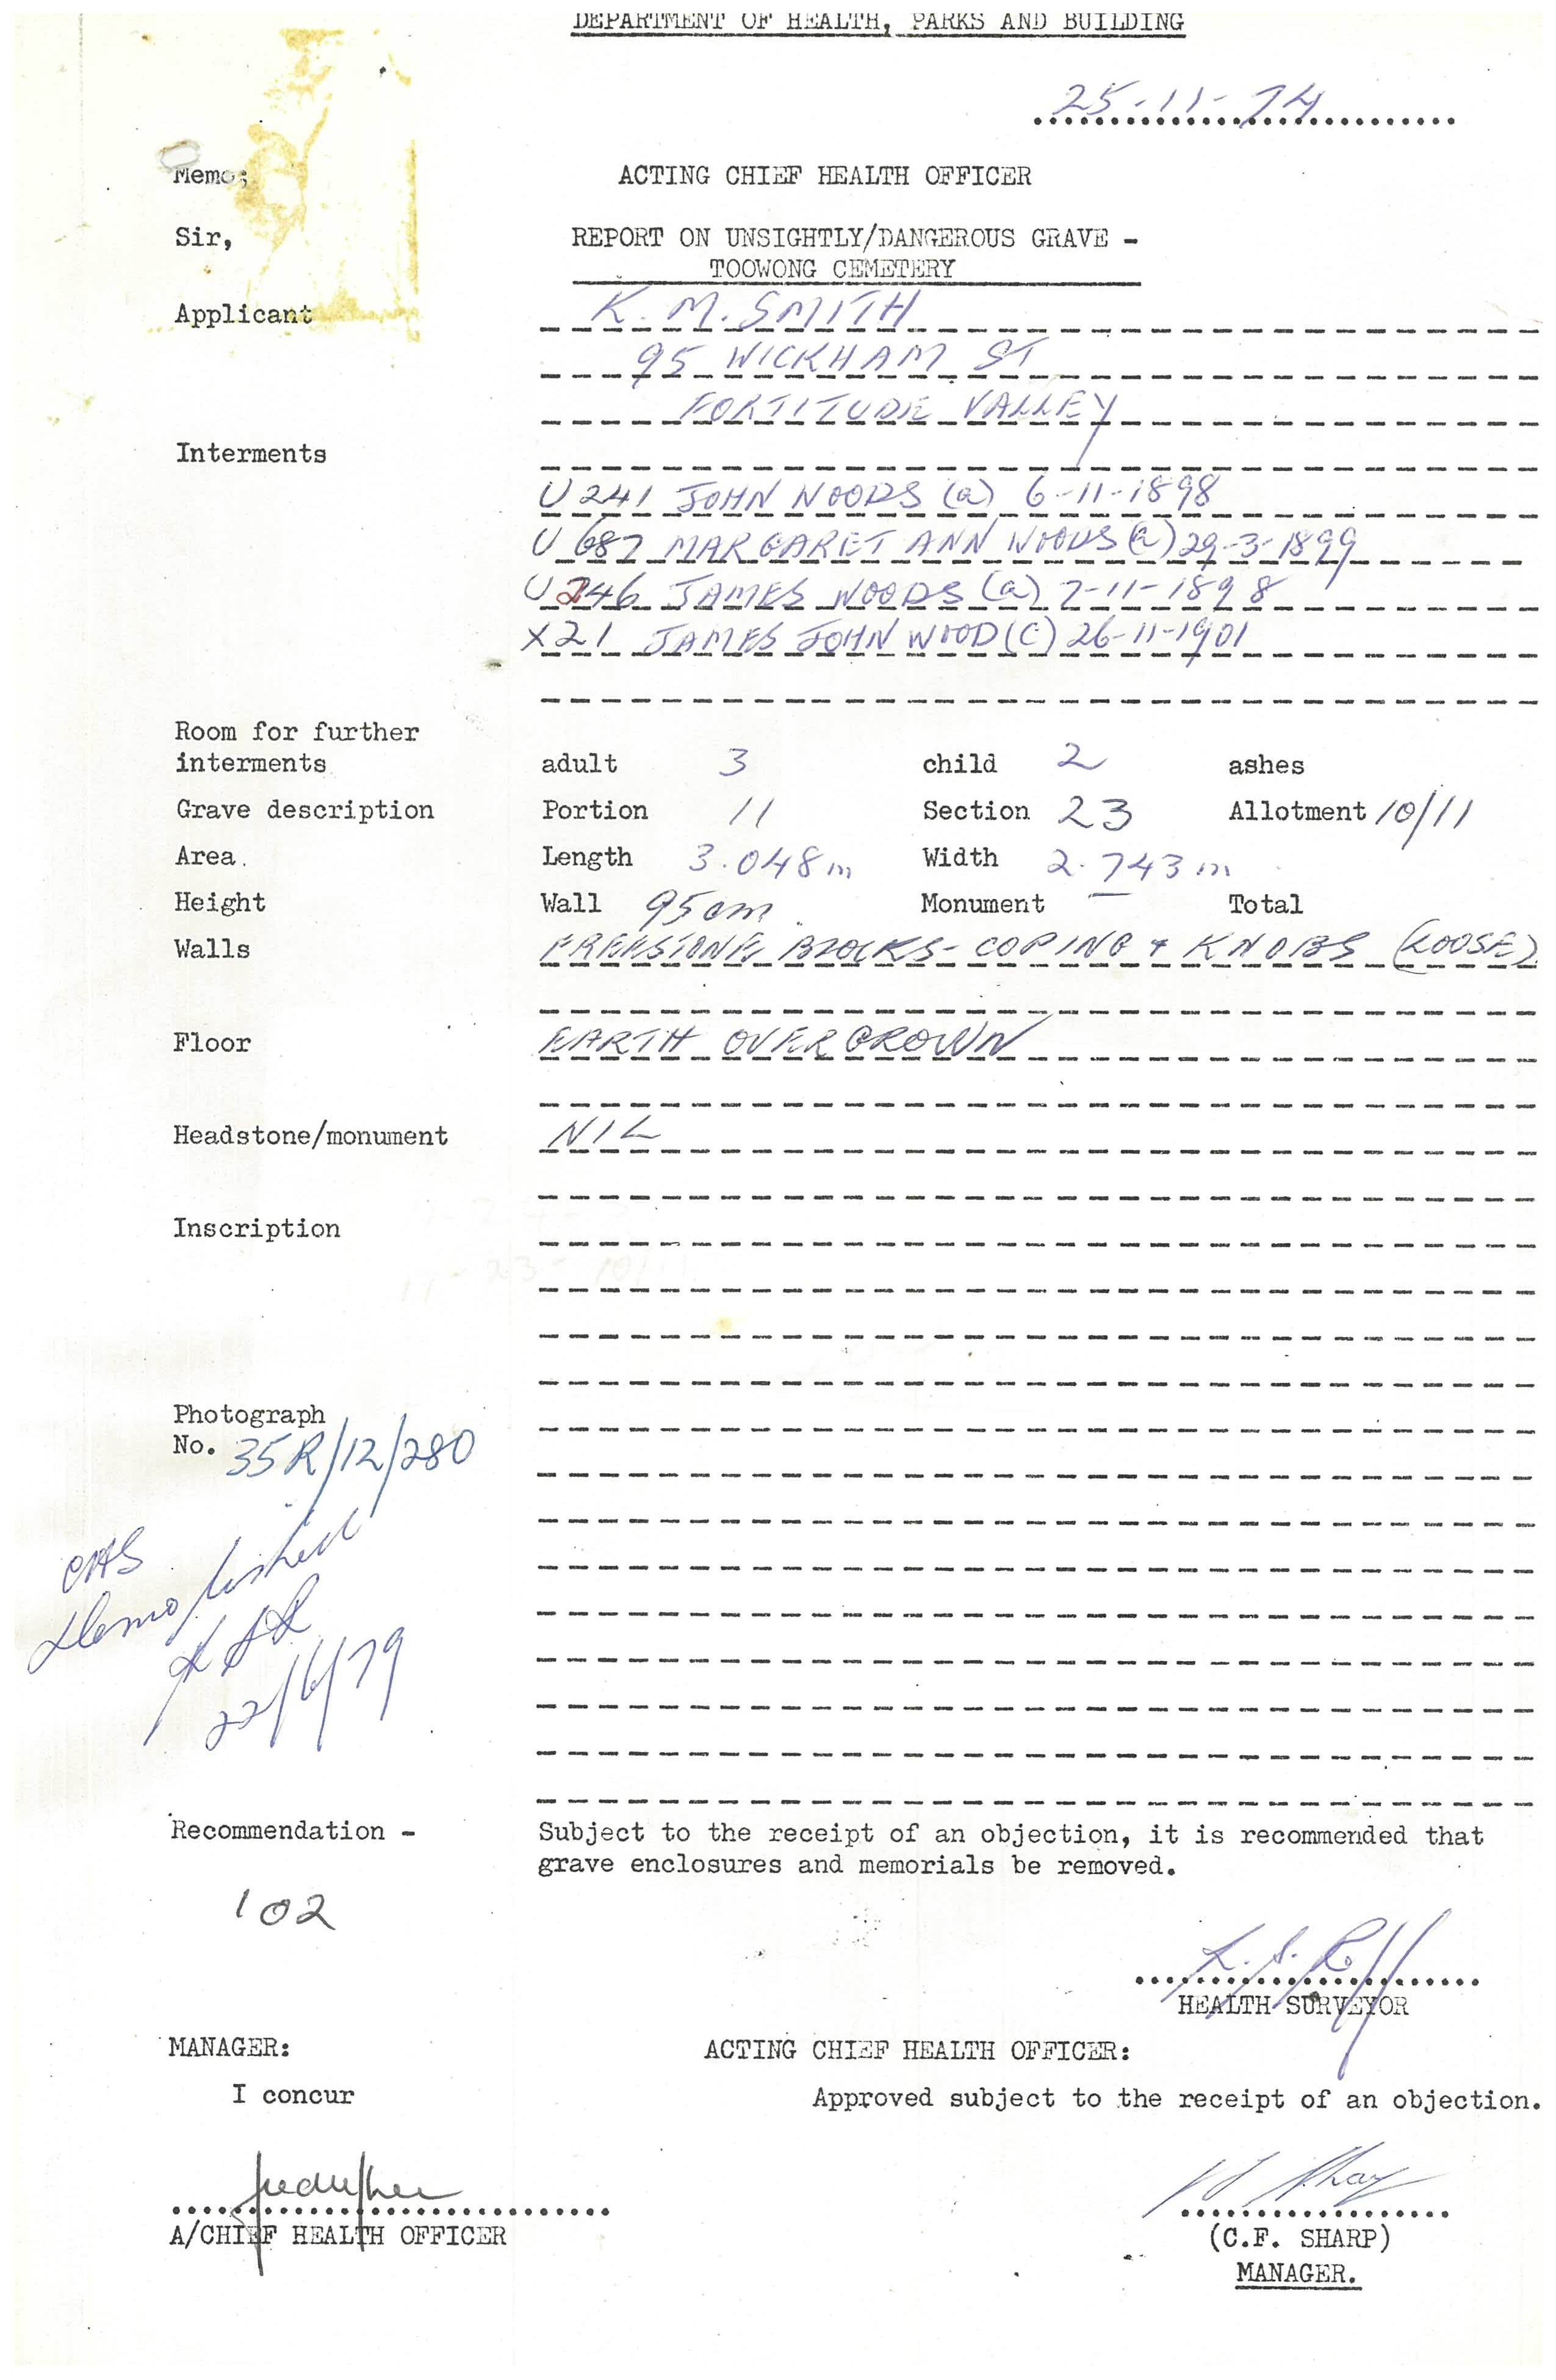 DEPARTMENT OF HEALTH, PARKS AND BUILDING
25-11-74
Memo: ACTING CHIEF HEALTH OFFICER
Sir, REPORT ON UNSIGHTLY/DANGEROUS GRAVE -
TOOWONG CEMETERY
Applicant K. M. SMITH
95 WICKHAM ST
FORTITUDE VALLEY
Interments
U 241 JOHN WOODS (a) 6-11-1898
U 687 MARGARET ANN WOODS (a) 29-3-1899
U 246 JAMES WOODS (a) 7-11-1898
X21 JAMES JOHN WOOD (C) 26-11-1901
Room for further
interments adult 3 child 2 ashes
Grave description Portion 11 Section 23 Allotment 10/11
Area. Length 3.048m Width 2.743m
Height Wall 95cm Monument — Total
Walls FREESTONE BLOCKS - COPING + KNOBS (LOOSE)
Floor EARTH OVERGROWN
Headstone/monument NIL
Inscription
11-23-10/11
Photograph
No. 35R/12/280
Demolished
22/6/79
Recommendation - Subject to the receipt of an objection, it is recommended that
grave enclosures and memorials be removed.
102
HEALTH SURVEYOR
MANAGER: ACTING CHIEF HEALTH OFFICER:
I concur Approved subject to the receipt of an objection.
A/CHIEF HEALTH OFFICER
(C.F. SHARP)
MANAGER.